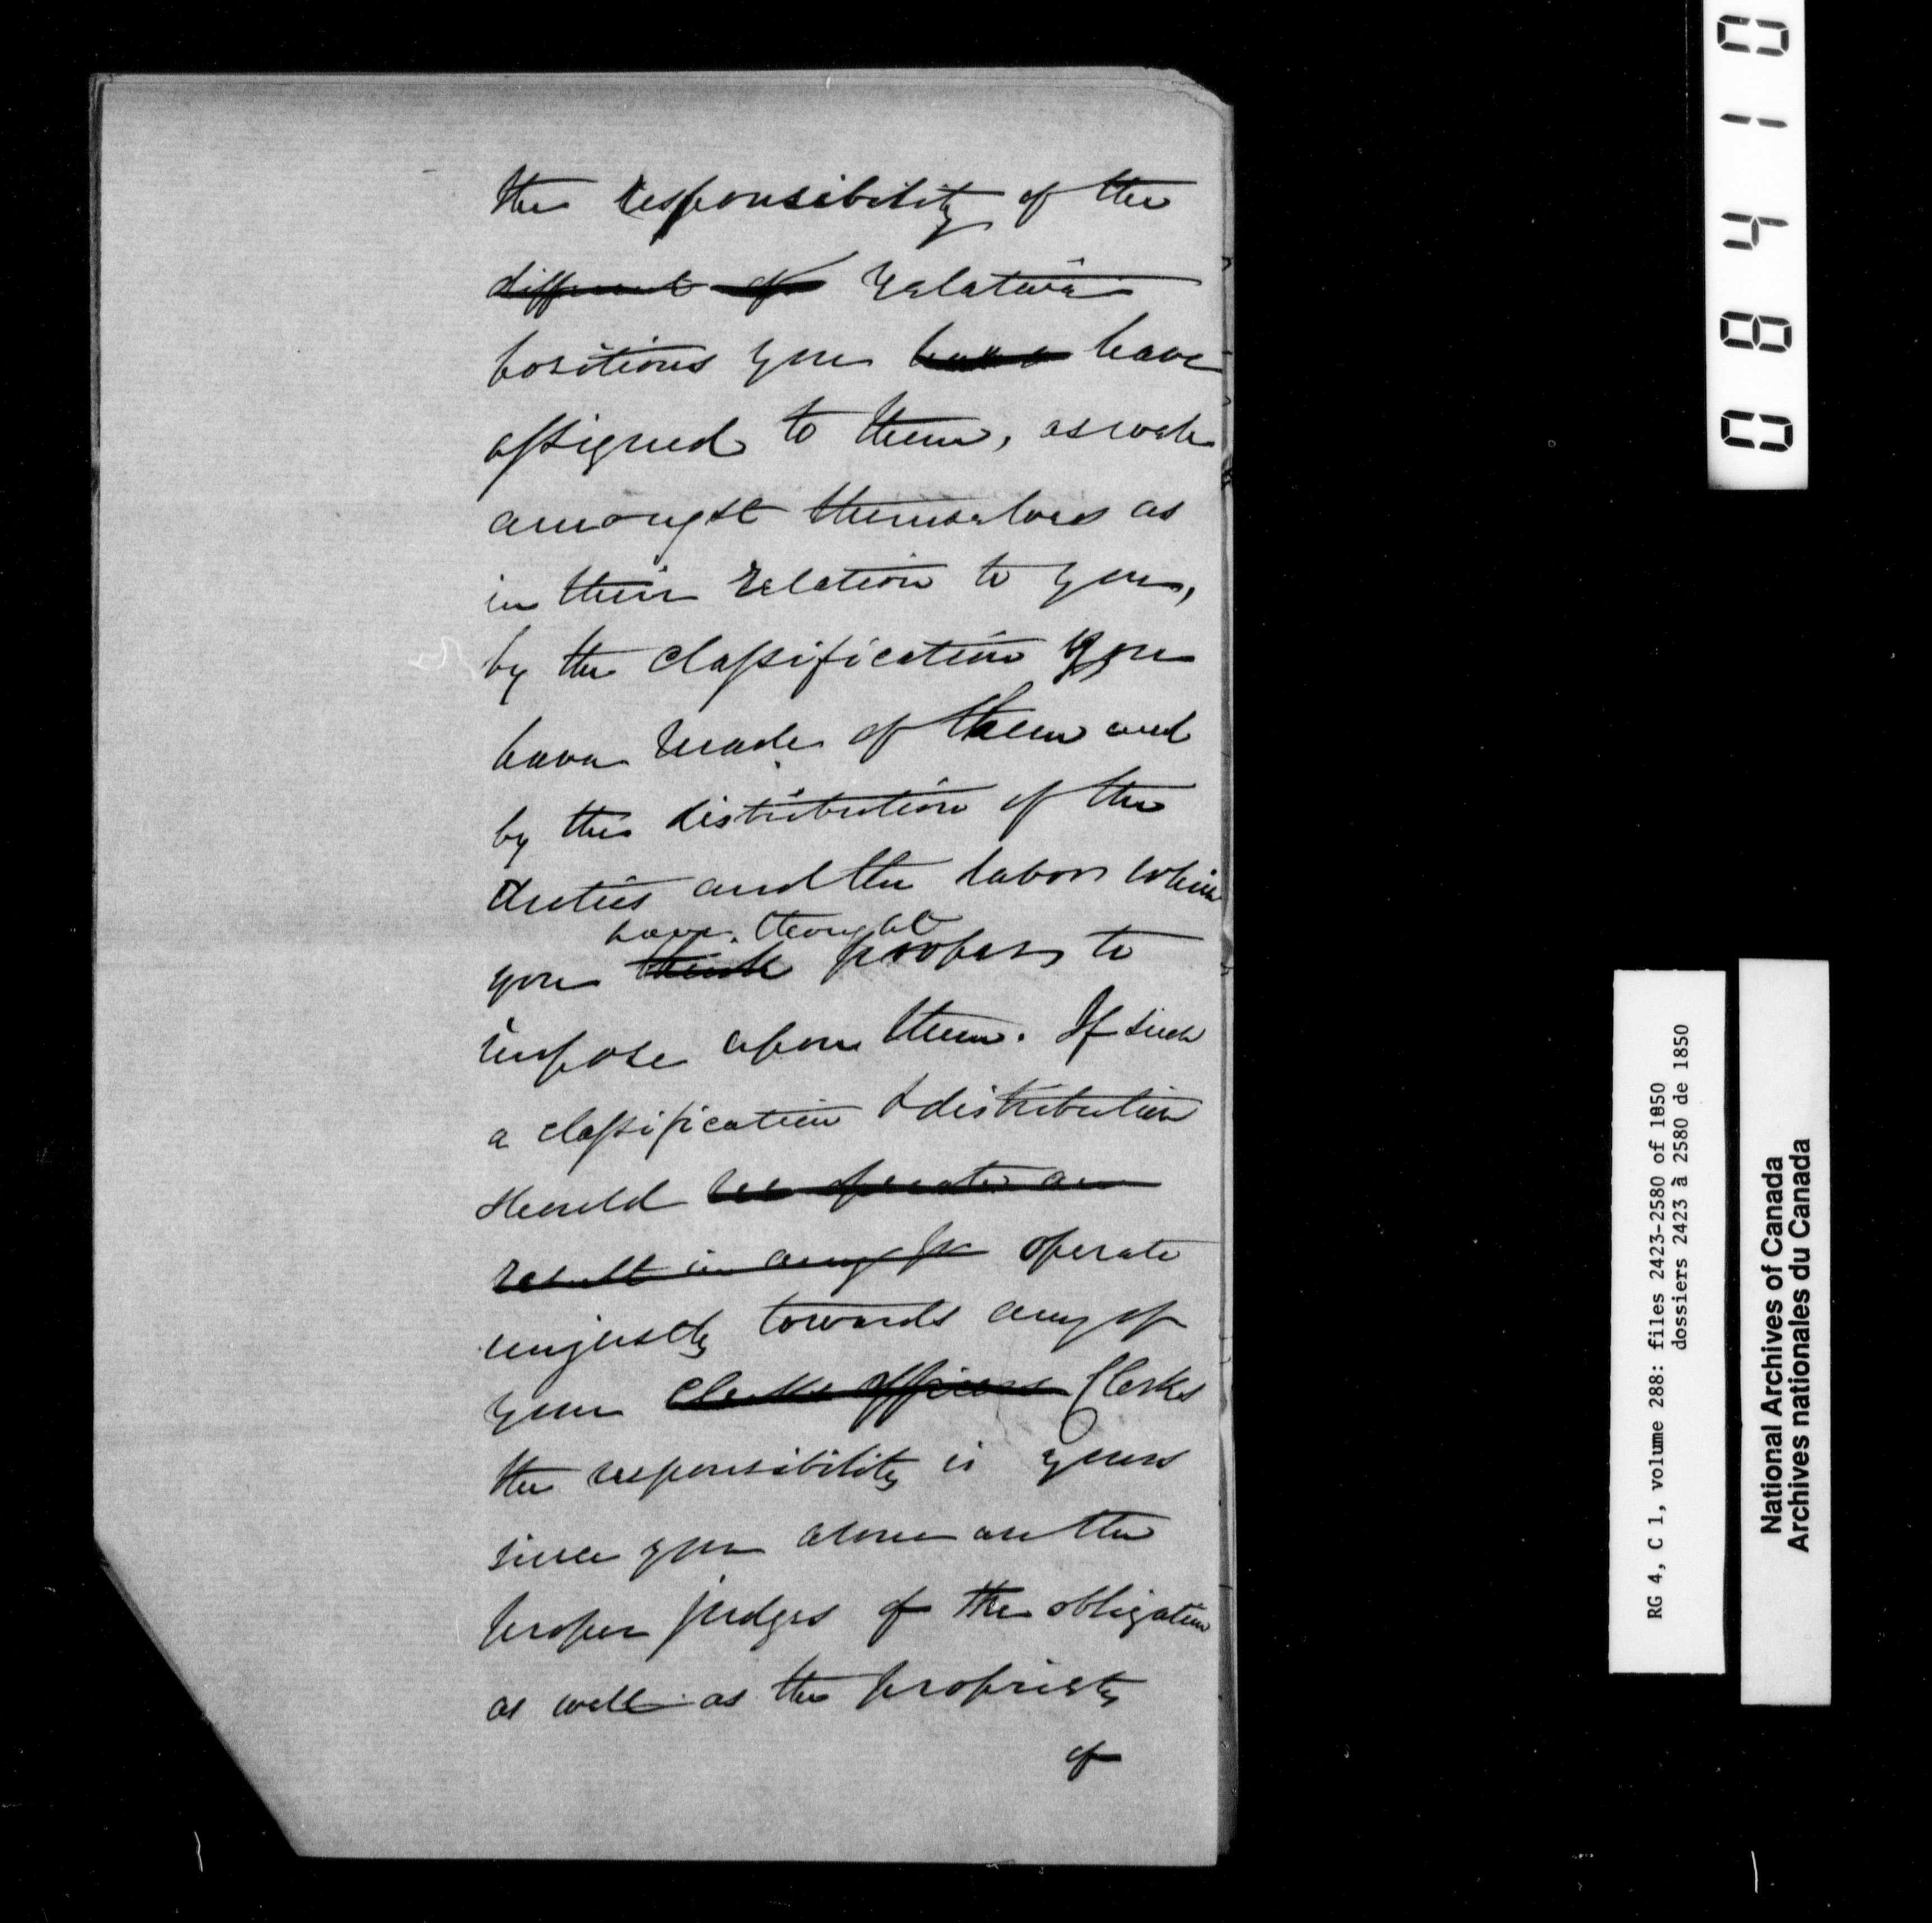 the responsibility of the
different of relative
positions you have have
assigned to them, as well
amongst themselves as
in their relation to you,
by the classification you
have made of them and
by the distribution of the
duties and the labor which
have thought
you think proper to
impose upon them. If such
a classification & distribution
should operate an
result in any operate
unjustly towards any of
your Clerks officers Clerks
the responsibility is yours
since you alone are the
proper judges of the obligation
as well as the propriety
of
08410
RG 4, C 1, volume 288: files 2423-2580 of 1850
dossiers 2423 à 2580 de 1850
National Archives of Canada
Archives nationales du Canada